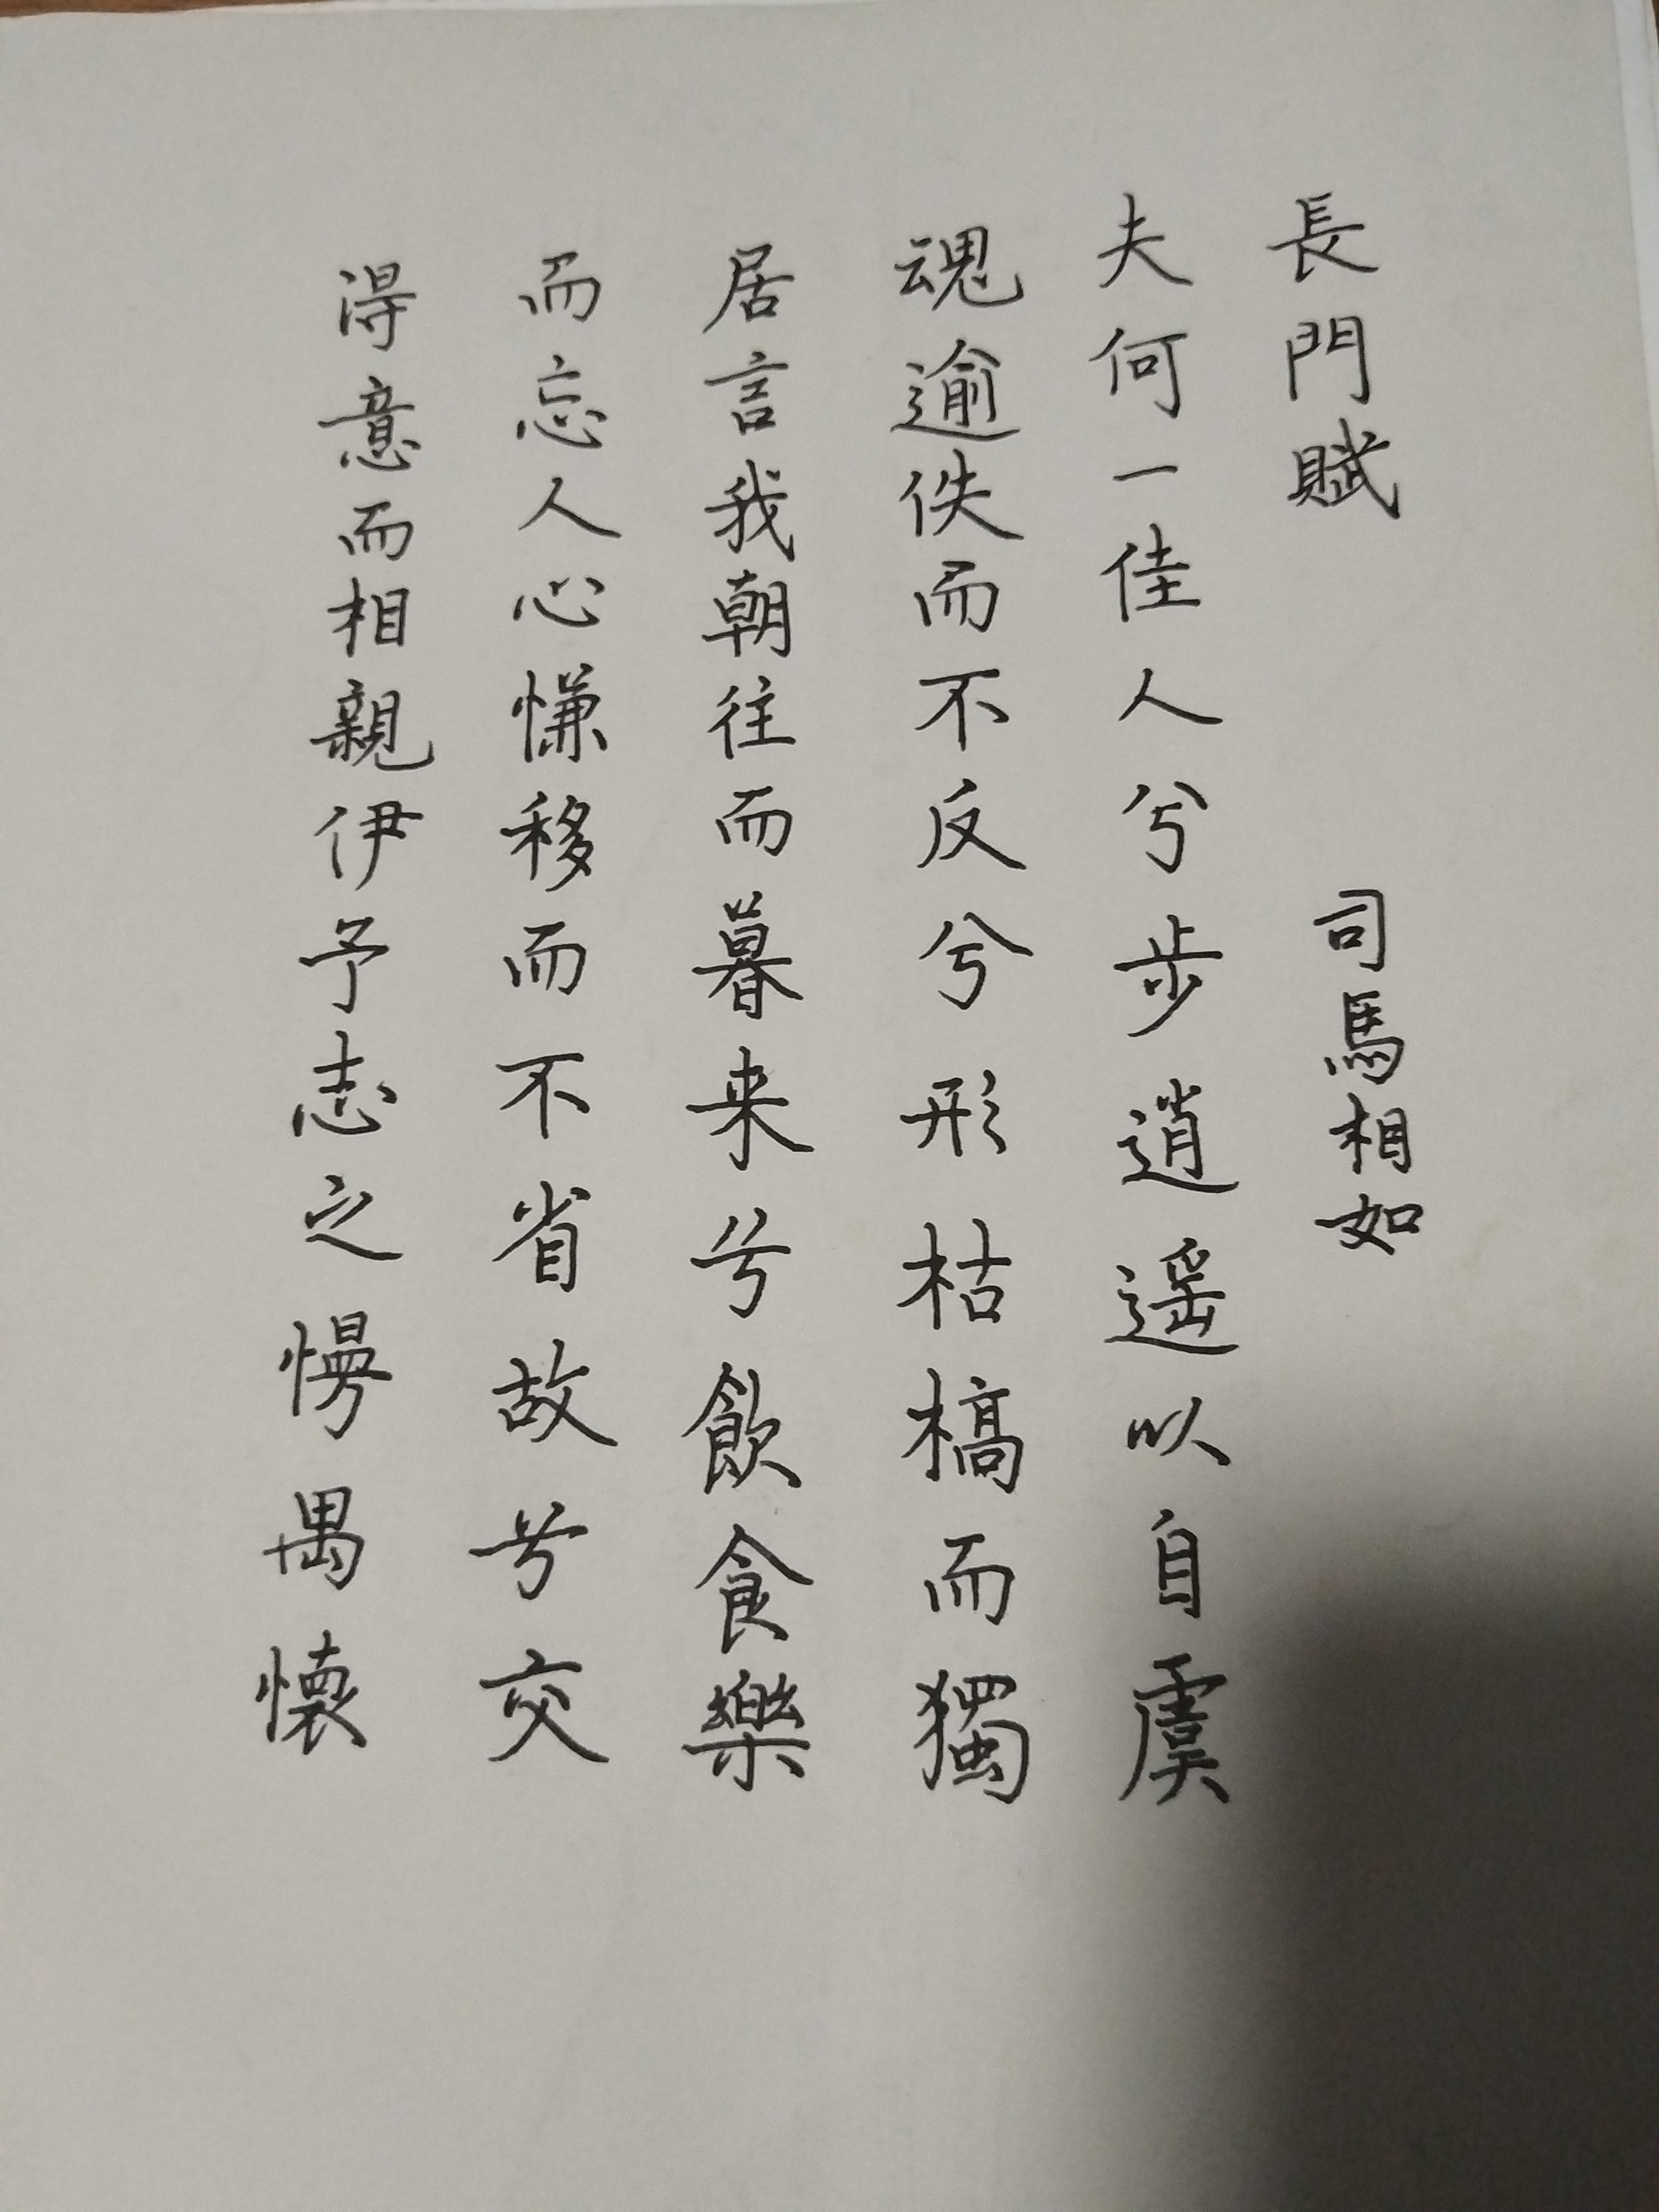 長門賦 司馬相如
夫何一佳人兮步逍遥以自虞
魂逾佚而不反兮形枯槁而獨
居言我朝往而暮来兮飲食樂
而忘人心慊移而不省故兮交
得意而相親伊予志之慢愚懷